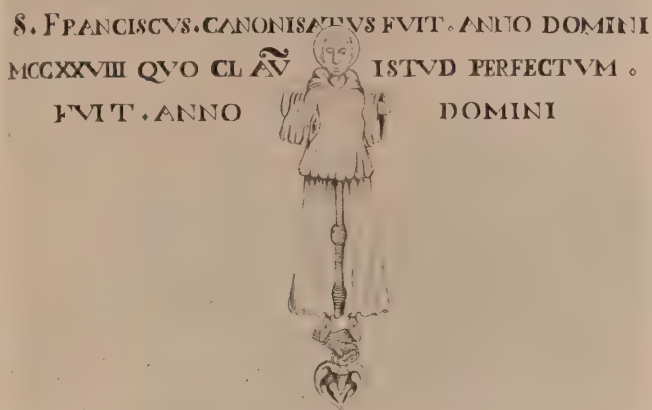 S. FRANCISCVS. CANONISATVS FVIT. ANNO DOMINI
MCCXXVIII QVO CL AṼ ISTVD PERFECTVM.
FVIT. ANNO DOMINI